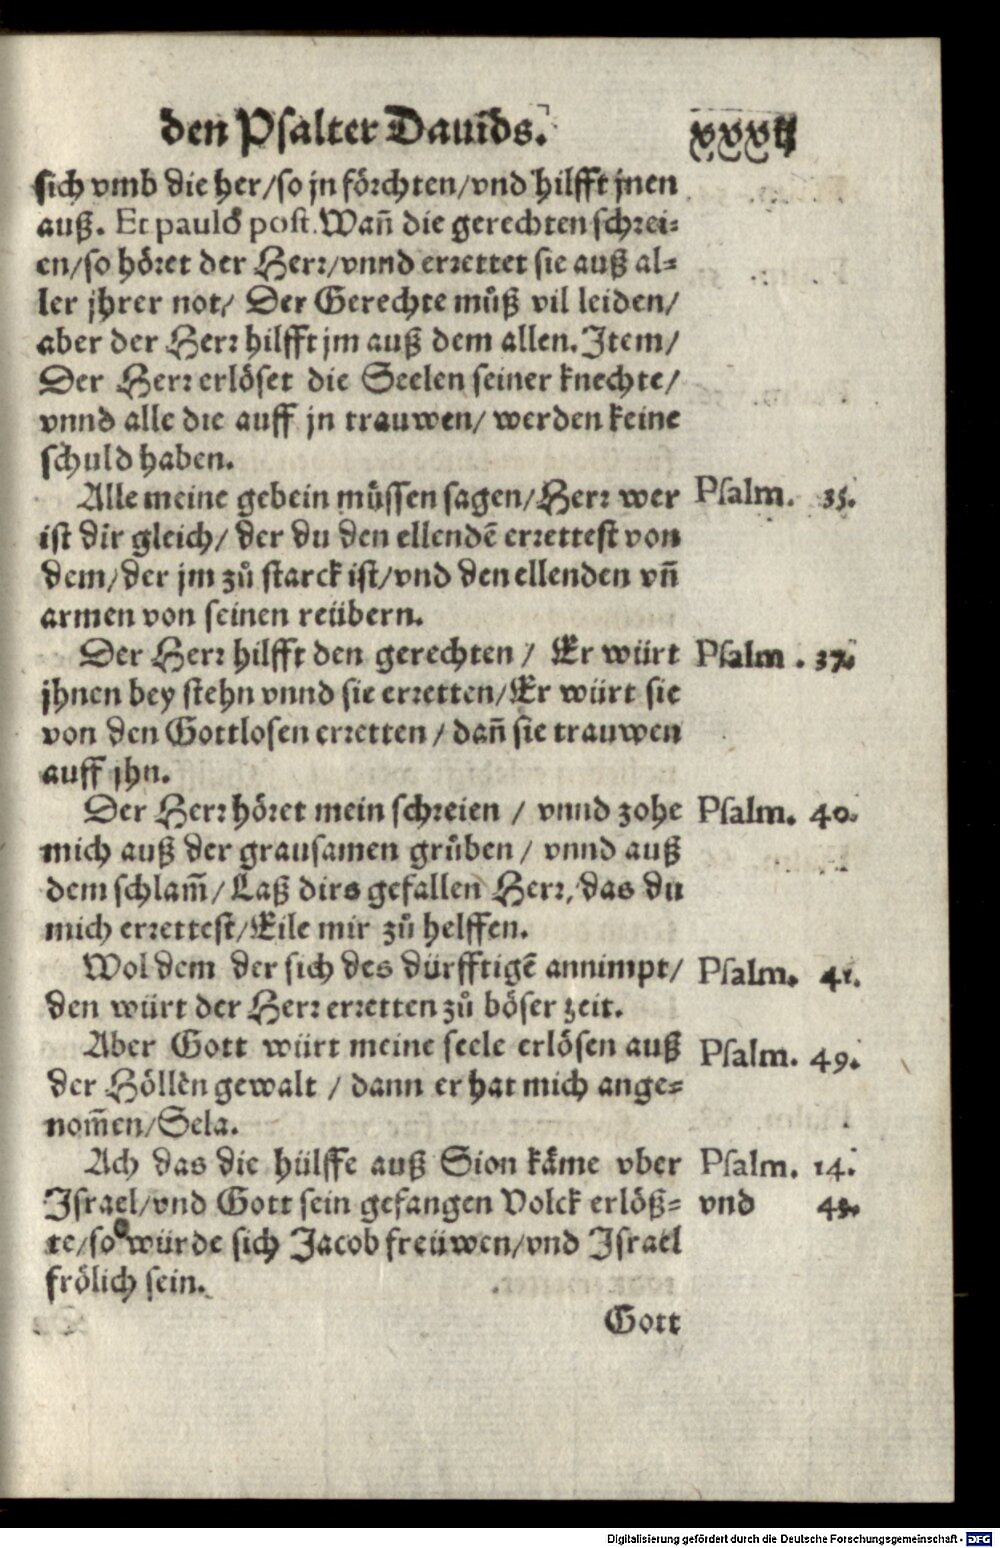 den Psalter Dauids. xxxvij
sich vmb die her/so jn förchten/vnd hilfft jnen
auß. Et paulò post. Wañ die gerechten schrei-
en/so höret der Herr/vnnd errettet sie auß al-
ler jhrer not/ Der Gerechte můß vil leiden/
aber der Herr hilfft jm auß dem allen. Item/
Der Herr erlöset die Seelen seiner knechte/
vnnd alle die auff jn trauwen/ werden keine
schuld haben.
Alle meine gebein müssen sagen/Herr wer Psalm. 35.
ist dir gleich/ der du den ellendẽ errettest von
dem/der jm zů starck ist/vnd den ellenden vñ
armen von seinen reübern.
Der Herr hilfft den gerechten / Er würt Psalm . 37.
jhnen bey stehn vnnd sie erretten/Er würt sie
von den Gottlosen erretten / dañ sie trauwen
auff jhn.
Der Herr höret mein schreien / vnnd zohe Psalm. 40.
mich auß der grausamen grůben / vnnd auß
dem schlam̃/ Laß dirs gefallen Herr/das du
mich errettest/Eile mir zů helffen.
Wol dem der sich des dürfftigẽ annimpt/ Psalm. 41.
den würt der Herr erretten zů böser zeit.
Aber Gott würt meine seele erlösen auß Psalm. 49.
der Höllen gewalt / dann er hat mich ange-
nom̃en/Sela.
Ach das die hülffe auß Sion kåme vber Psalm. 14.
Israel/vnd Gott sein gefangen Volck erlöß- vnd
te/so würde sich Jacob freüwen/vnd Israel
frölich sein.
Gott
Digitalisierung gefördert durch die Deutsche Forschungsgemeinschaft - DFG